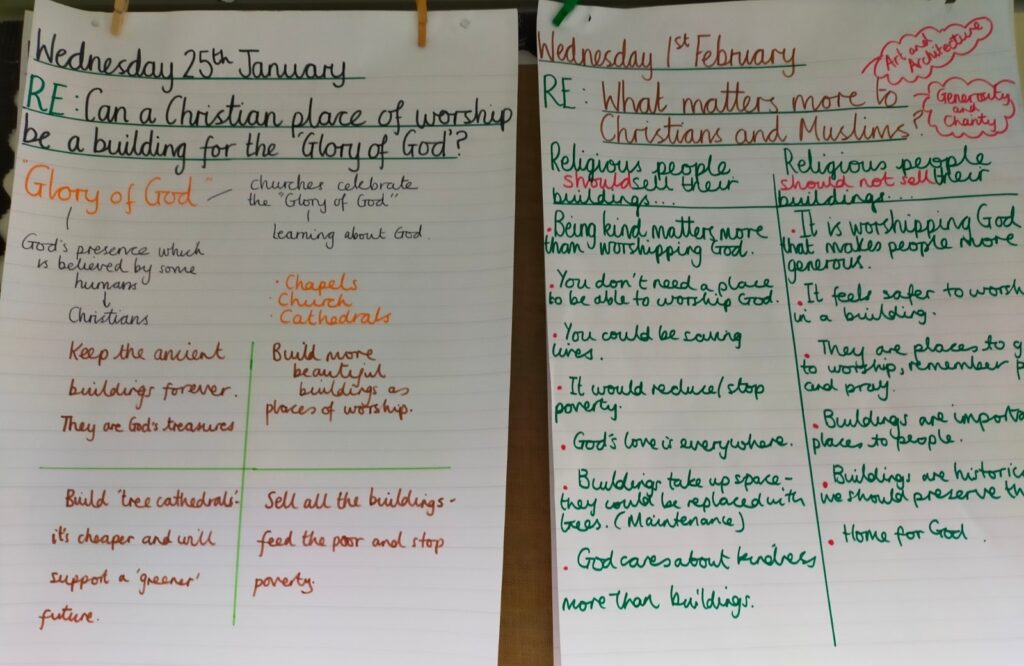 Wednesday 25th January
RE: Can a Christian place of worship
be a building for the "Glory of God"?
"Glory of God"
churches celebrate
the "Glory of God"
learning about God.
God's presence which
is believed by some
humans
Christians
· Chapels
· Church
· Cathedrals
Keep the ancient
buildings forever.
They are God's treasures
Build more
beautiful
buildings as
places of worship.
Build 'tree cathedrals'-
it's cheaper and will
support a 'greener'
future.
Sell all the buildings -
feed the poor and stop
poverty.
Wednesday 1st February
Art and
Architecture
RE: What matters more to
Christians and Muslims?
Generosity
and
Charity
Religious people
should sell their
buildings...
· Being kind matters more
than worshipping God.
· You don't need a place
to be able to worship God.
· You could be saving
lives.
· It would reduce/stop
poverty.
· God's love is everywhere.
· Buildings take up space -
they could be replaced with
trees. (Maintenance)
· God cares about kindness
more than buildings.
Religious people
should not sell their
buildings...
· It is worshipping God
that makes people more
generous.
· It feels safer to worsh
in a building.
· They are places to g
to worship, remember p
and pray.
· Buildings are importa
places to people.
· Buildings are historic
we should preserve th
· Home for God.